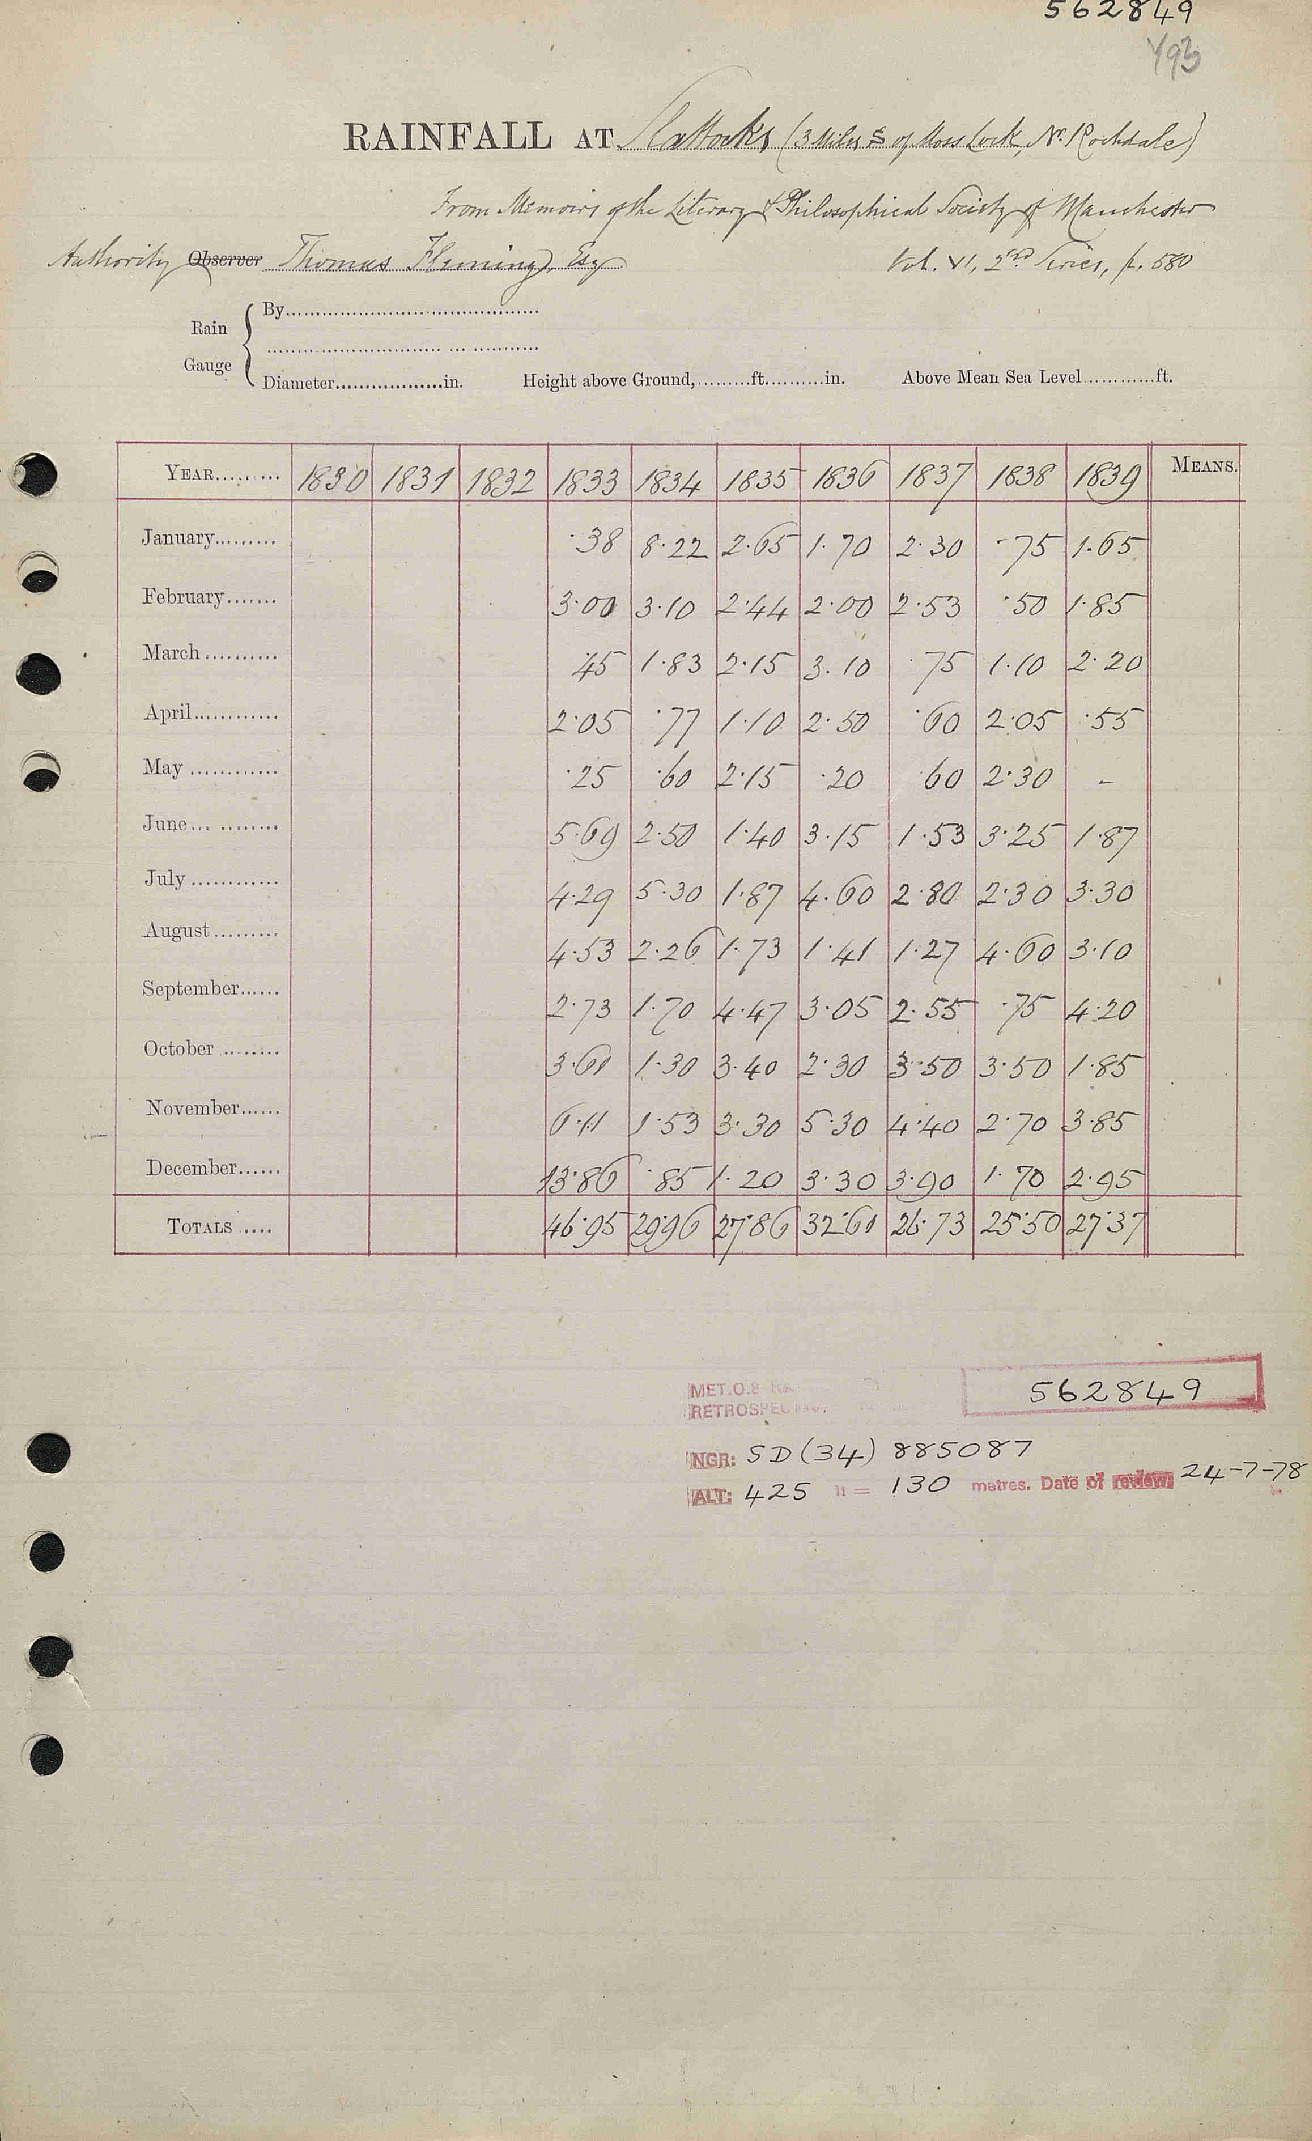 562849
493
RAINFALL AT Slattocks (3 Miles S of Moss Lock, Nr. Rochdale)
From Memoirs of the Literary & Philosophical Society of Manchester
Authority Observer Thomas Fleming, Esq Vol. VI, 2nd Series, p. 580
Rain Gauge
By
Diameter in. Height above Ground, ft. in. Above Mean Sea Level ft.
YEAR 1830 1831 1832 1833 1834 1835 1836 1837 1838 1839 MEANS.
January ·38 8·22 2·65 1·70 2·30 ·75 1·65
February 3·00 3·10 2·44 2·00 2·53 ·50 1·85
March ·45 1·83 2·15 3·10 ·75 1·10 2·20
April 2·05 ·77 1·10 2·50 ·60 2·05 ·55
May ·25 ·60 2·15 ·20 ·60 2·30 -
June 5·69 2·50 1·40 3·15 1·53 3·25 1·87
July 4·29 5·30 1·87 4·60 2·80 2·30 3·30
August 4·53 2·26 1·73 1·41 1·27 4·60 3·10
September 2·73 1·70 4·47 3·05 2·55 ·75 4·20
October 3·61 1·30 3·40 2·30 3·50 3·50 1·85
November 6·11 1·53 3·30 5·30 4·40 2·70 3·85
December 13·86 ·85 1·20 3·30 3·90 1·70 2·95
TOTALS 46·95 29·96 27·86 32·61 26·73 25·50 27·37
MET.O.8
562849
NGR: SD (34) 885087
ALT: 425 ft = 130 metres. Date of review 24-7-78